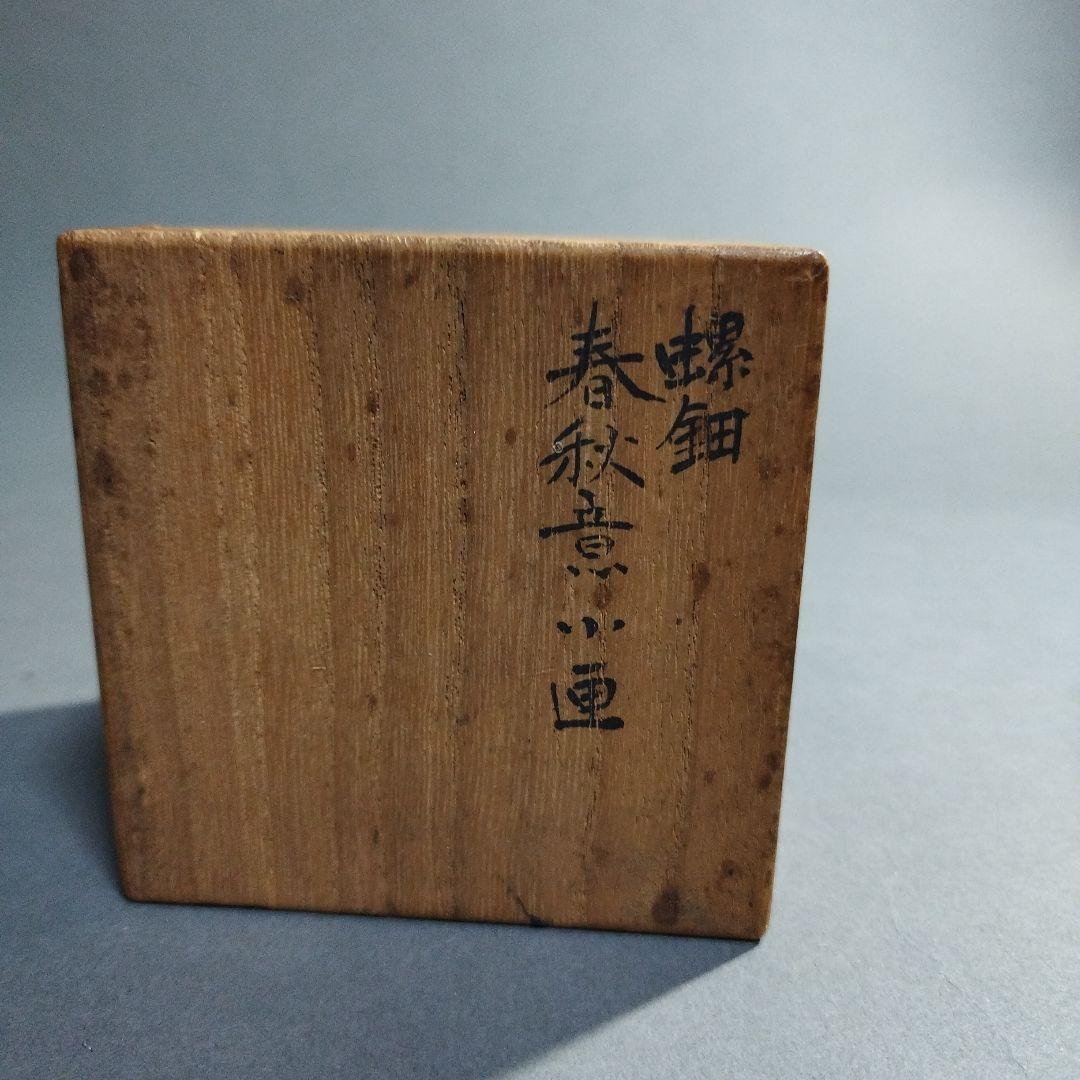 螺鈿
春秋意小匣